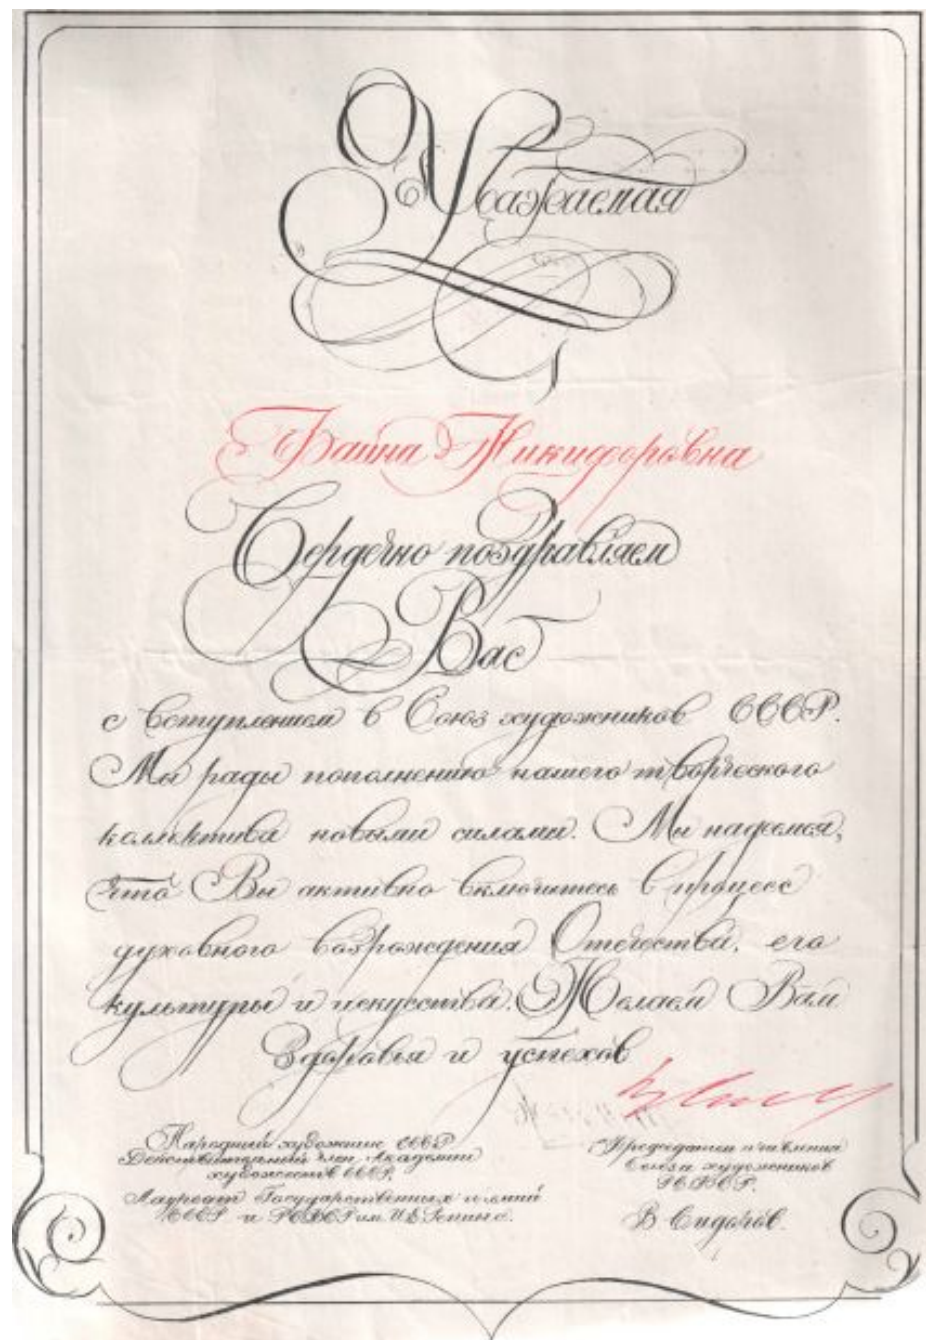 Уважаемая
Фаина Никифоровна
Сердечно поздравляем
Вас
с вступлением в Союз художников СССР.
Мы рады пополнению нашего творческого
коллектива новыми силами. Мы надеемся,
что Вы активно включитесь в процесс
духовного возрождения Отечества, его
культуры и искусства. Желаем Вам
Здоровья и успехов
Народный художник СССР
Действительный член Академии
художеств СССР,
Лауреат Государственных премий
СССР и РСФСР им. И.Е. Репина.
Председатель правления
Союза художников
РСФСР.
В Сидоров.